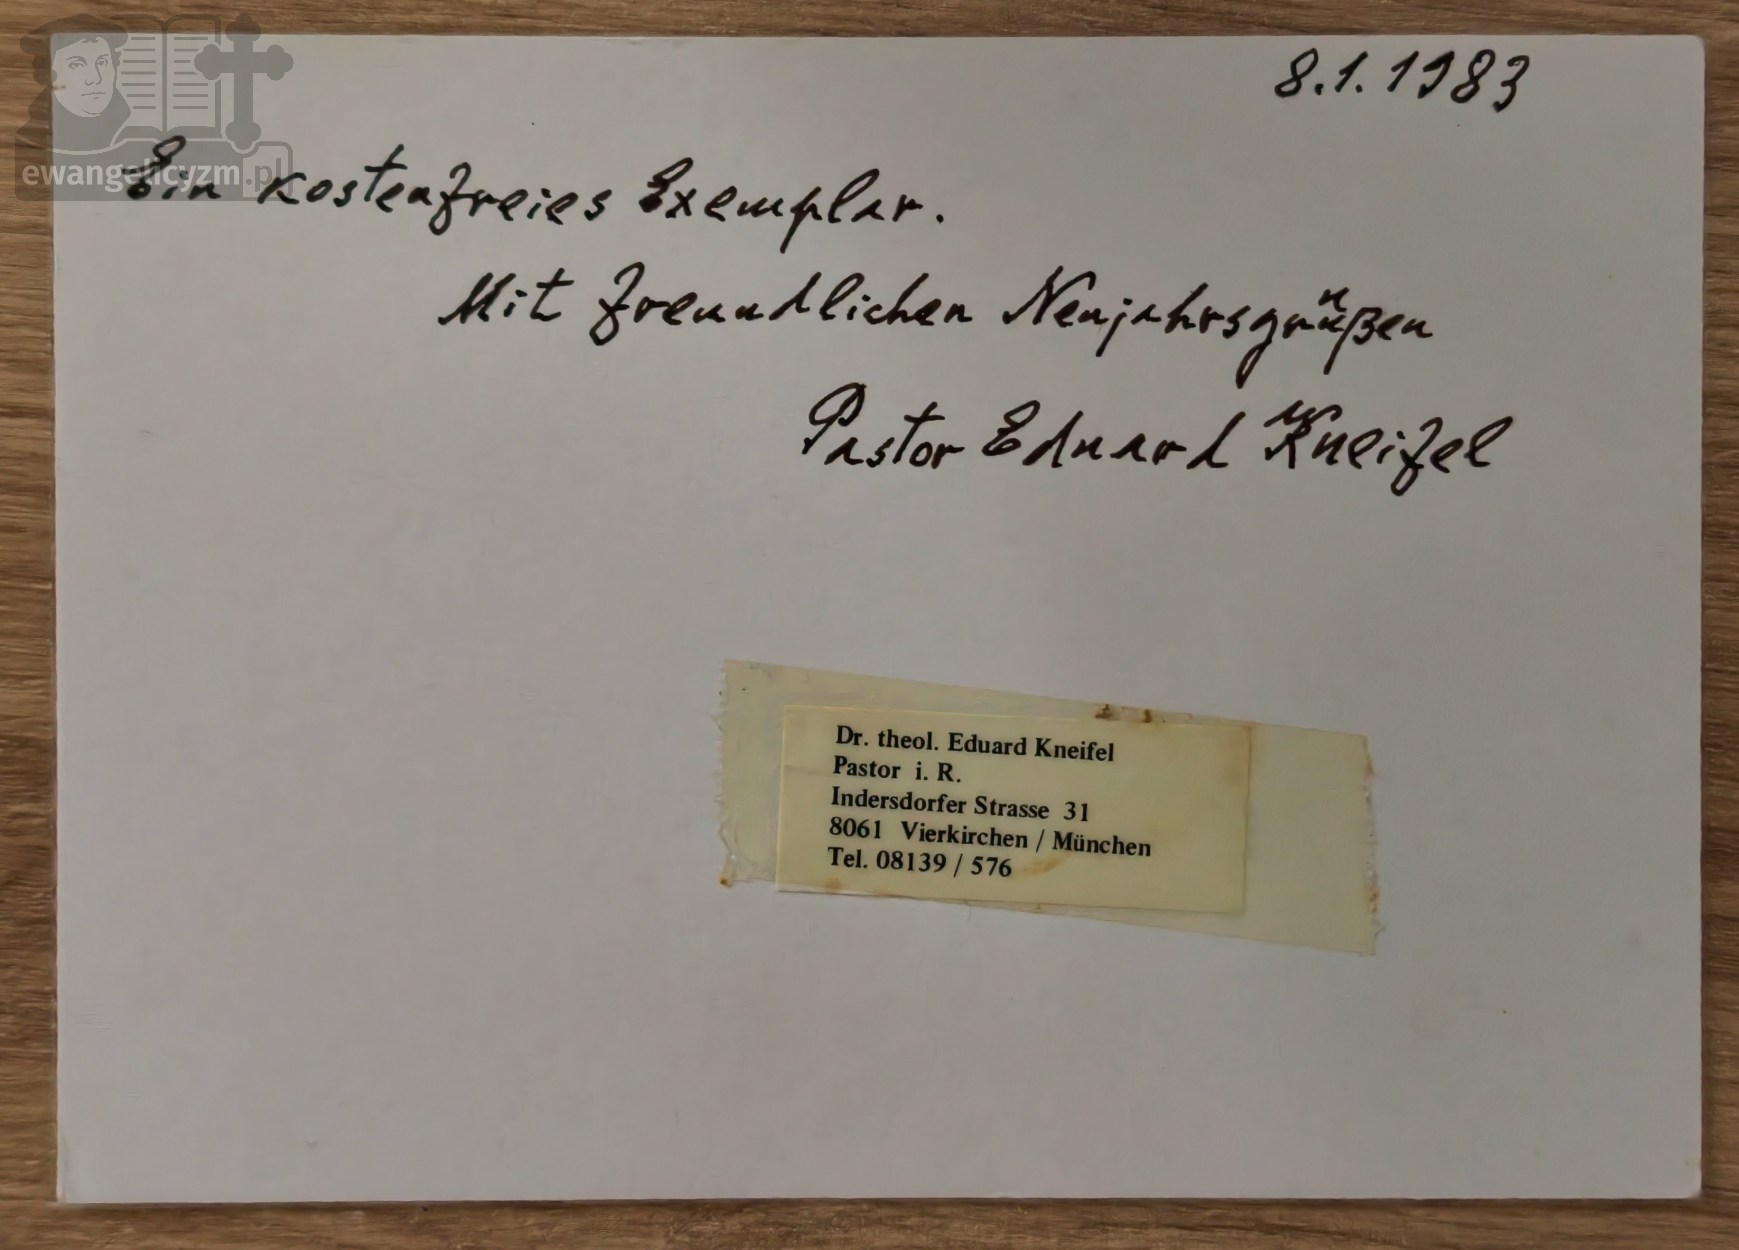 ewangelicyzm.pl
8.1.1983
Ein kostenfreies Exemplar.
Mit freundlichen Neujahrsgrüßen
Pastor Eduard Kneifel
Dr. theol. Eduard Kneifel
Pastor i. R.
Indersdorfer Strasse 31
8061 Vierkirchen / München
Tel. 08139 / 576